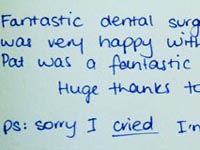 Fantastic dental surg
was very happy with
Pat was a fantastic
Huge thanks to
PS: sorry I cried I'm